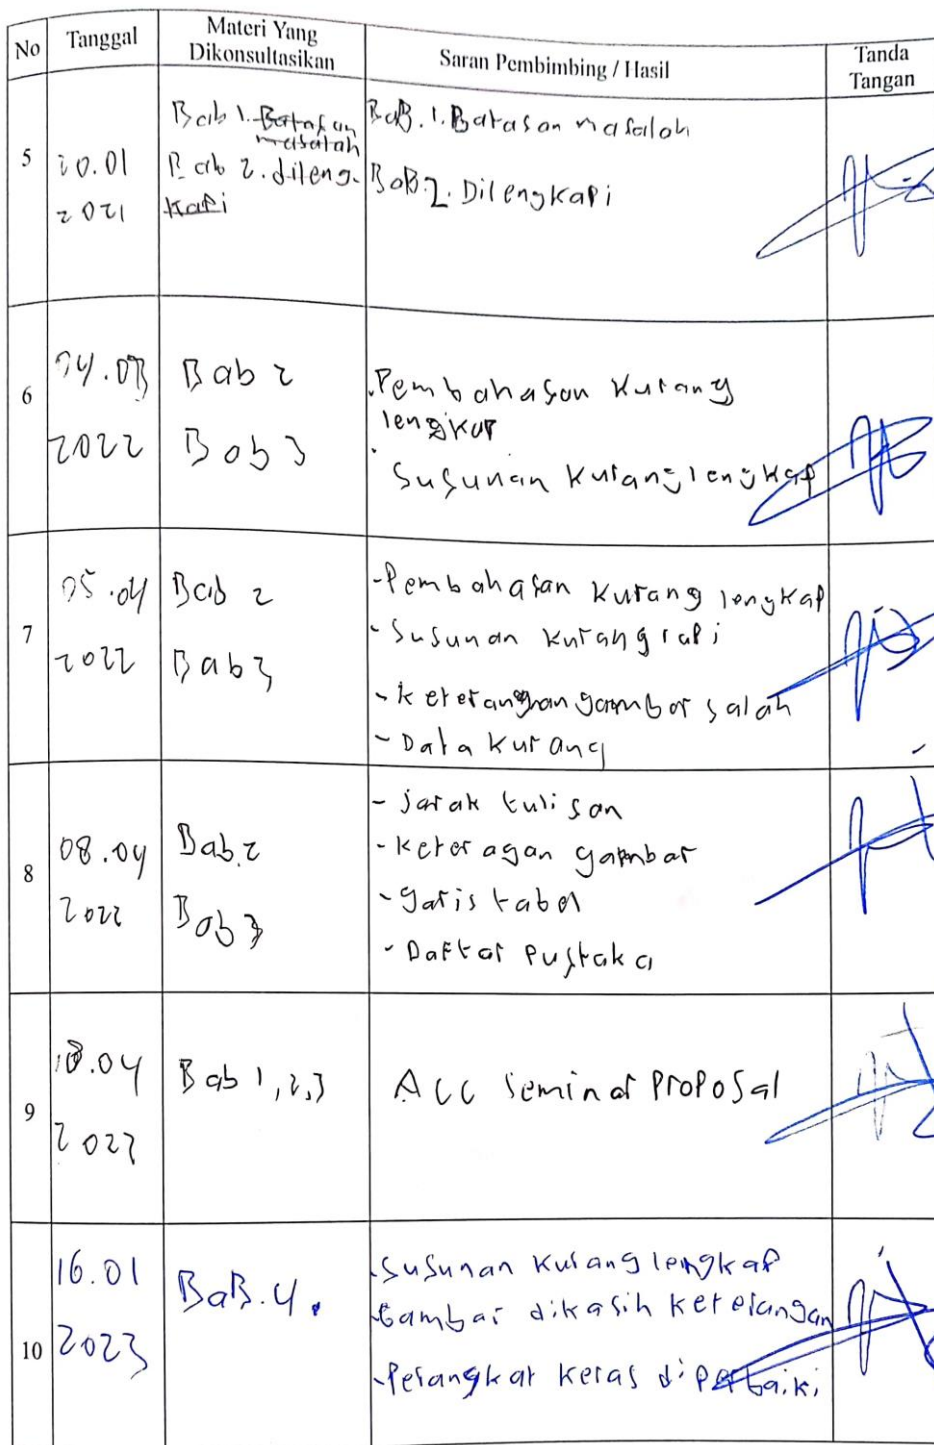 No
Tanggal
Materi Yang
Dikonsultasikan
Saran Pembimbing / Hasil
Tanda
Tangan
5
10.01
2021
Bab 1. Batasan
masalah
Bab 2. dileng-
kapi
BaB. 1. Batasan masalah
BaB. 2. Dilengkapi
6
04.03
2022
Bab 2
Bab 3
. Pembahasan Kurang
lengkap
. Susunan Kurang lengkap
7
05.04
2022
Bab 2
Bab 3
- Pembahasan Kurang lengkap
- Susunan Kurang rapi
- keterangan gambar salah
- Data Kurang
8
08.04
2022
Bab.2
Bab 3
- jarak tulisan
- keteragan gambar
- garis tabel
- Daftar Pustaka
9
.04
2022
Bab 1,2,3
Acc Seminar Proposal
10
16.01
2023
BaB.4.
- Susunan Kurang lengkap
- Gambar dikasih keterangan
- Perangkat Keras diperbaiki